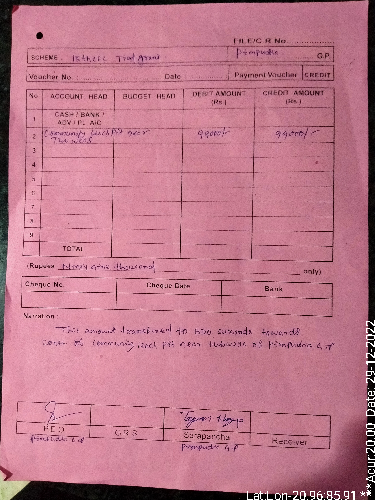 FILE/C R No
SCHEME : 15th CFC Tied Grant Pimpudia G.P.
Voucher No. Date Payment Voucher CREDIT
No ACCOUNT HEAD BUDGET HEAD DEBIT AMOUNT (Rs.) CREDIT AMOUNT (Rs.)
1 CASH / BANK / ADV / PL A/C
2 Community Leach Pit near 99000/- 99000/-
3
4
5
6
7
8
9
TOTAL
(Rupees Ninety nine thousand only)
Cheque No. Cheque Date Bank
Narration :
This amount transfered to towards
of community leach pit near of G.P
PEO GRS Sarapancha Receiver
G.P G.P
Lat:Lon-20.96:85.91 ***Acur:20.00, Date: 29-12-2022